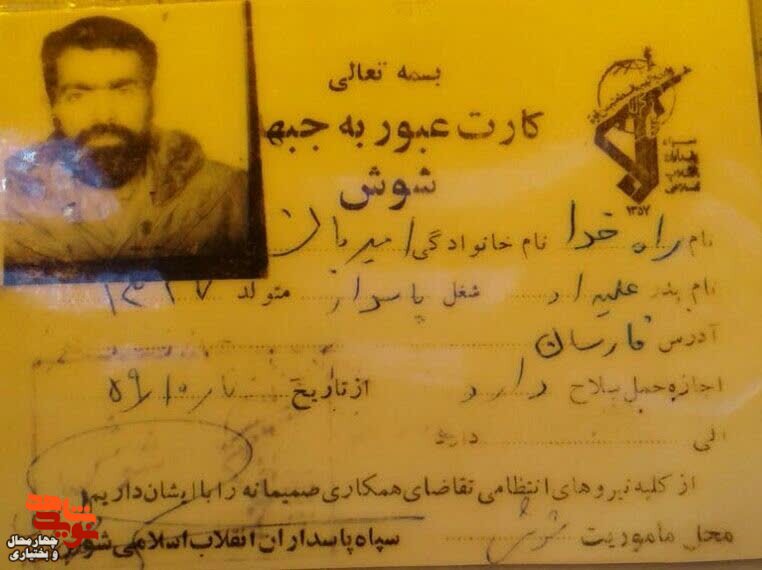 بسمه تعالی
کارت عبور به جبهه
شوش
سپاه
پاسداران
انقلاب
اسلامی
۱۳۵۷
نام راه خدا نام خانوادگی امیریان
نام پدر علیمراد شغل پاسدار متولد ۱۳۳۷
آدرس فارسان
اجازه حمل سلاح دارد از تاریخ ۵۹/۱۰
الی دارد
از کلیه نیروهای انتظامی تقاضای همکاری صمیمانه را با ایشان داریم
محل ماموریت شوش سپاه پاسداران انقلاب اسلامی شوش
چهارمحال
و بختیاری